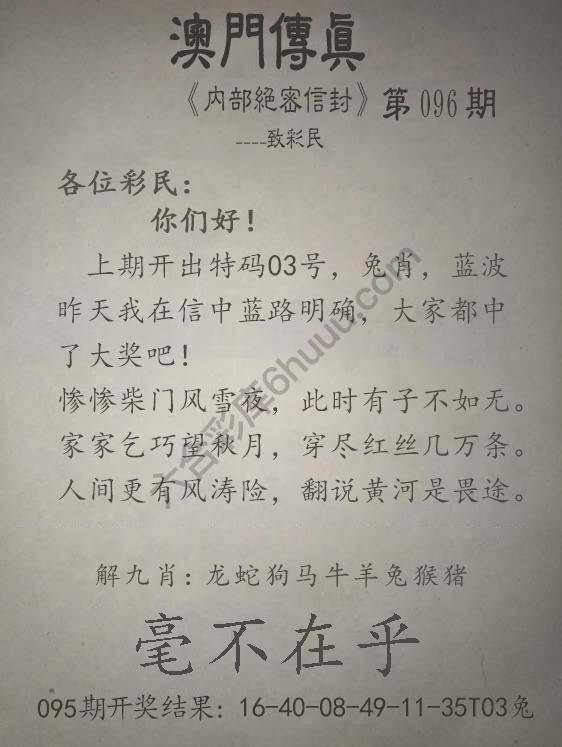 澳門傳眞
《内部絕密信封》第096期
----致彩民
各位彩民：
你们好！
上期开出特码03号，兔肖，蓝波
昨天我在信中蓝路明确，大家都中
了大奖吧！
惨惨柴门风雪夜，此时有子不如无。
家家乞巧望秋月，穿尽红丝几万条。
人间更有风涛险，翻说黄河是畏途。
六合彩库6huuu.com
解九肖：龙蛇狗马牛羊兔猴猪
毫不在乎
095期开奖结果：16-40-08-49-11-35T03兔